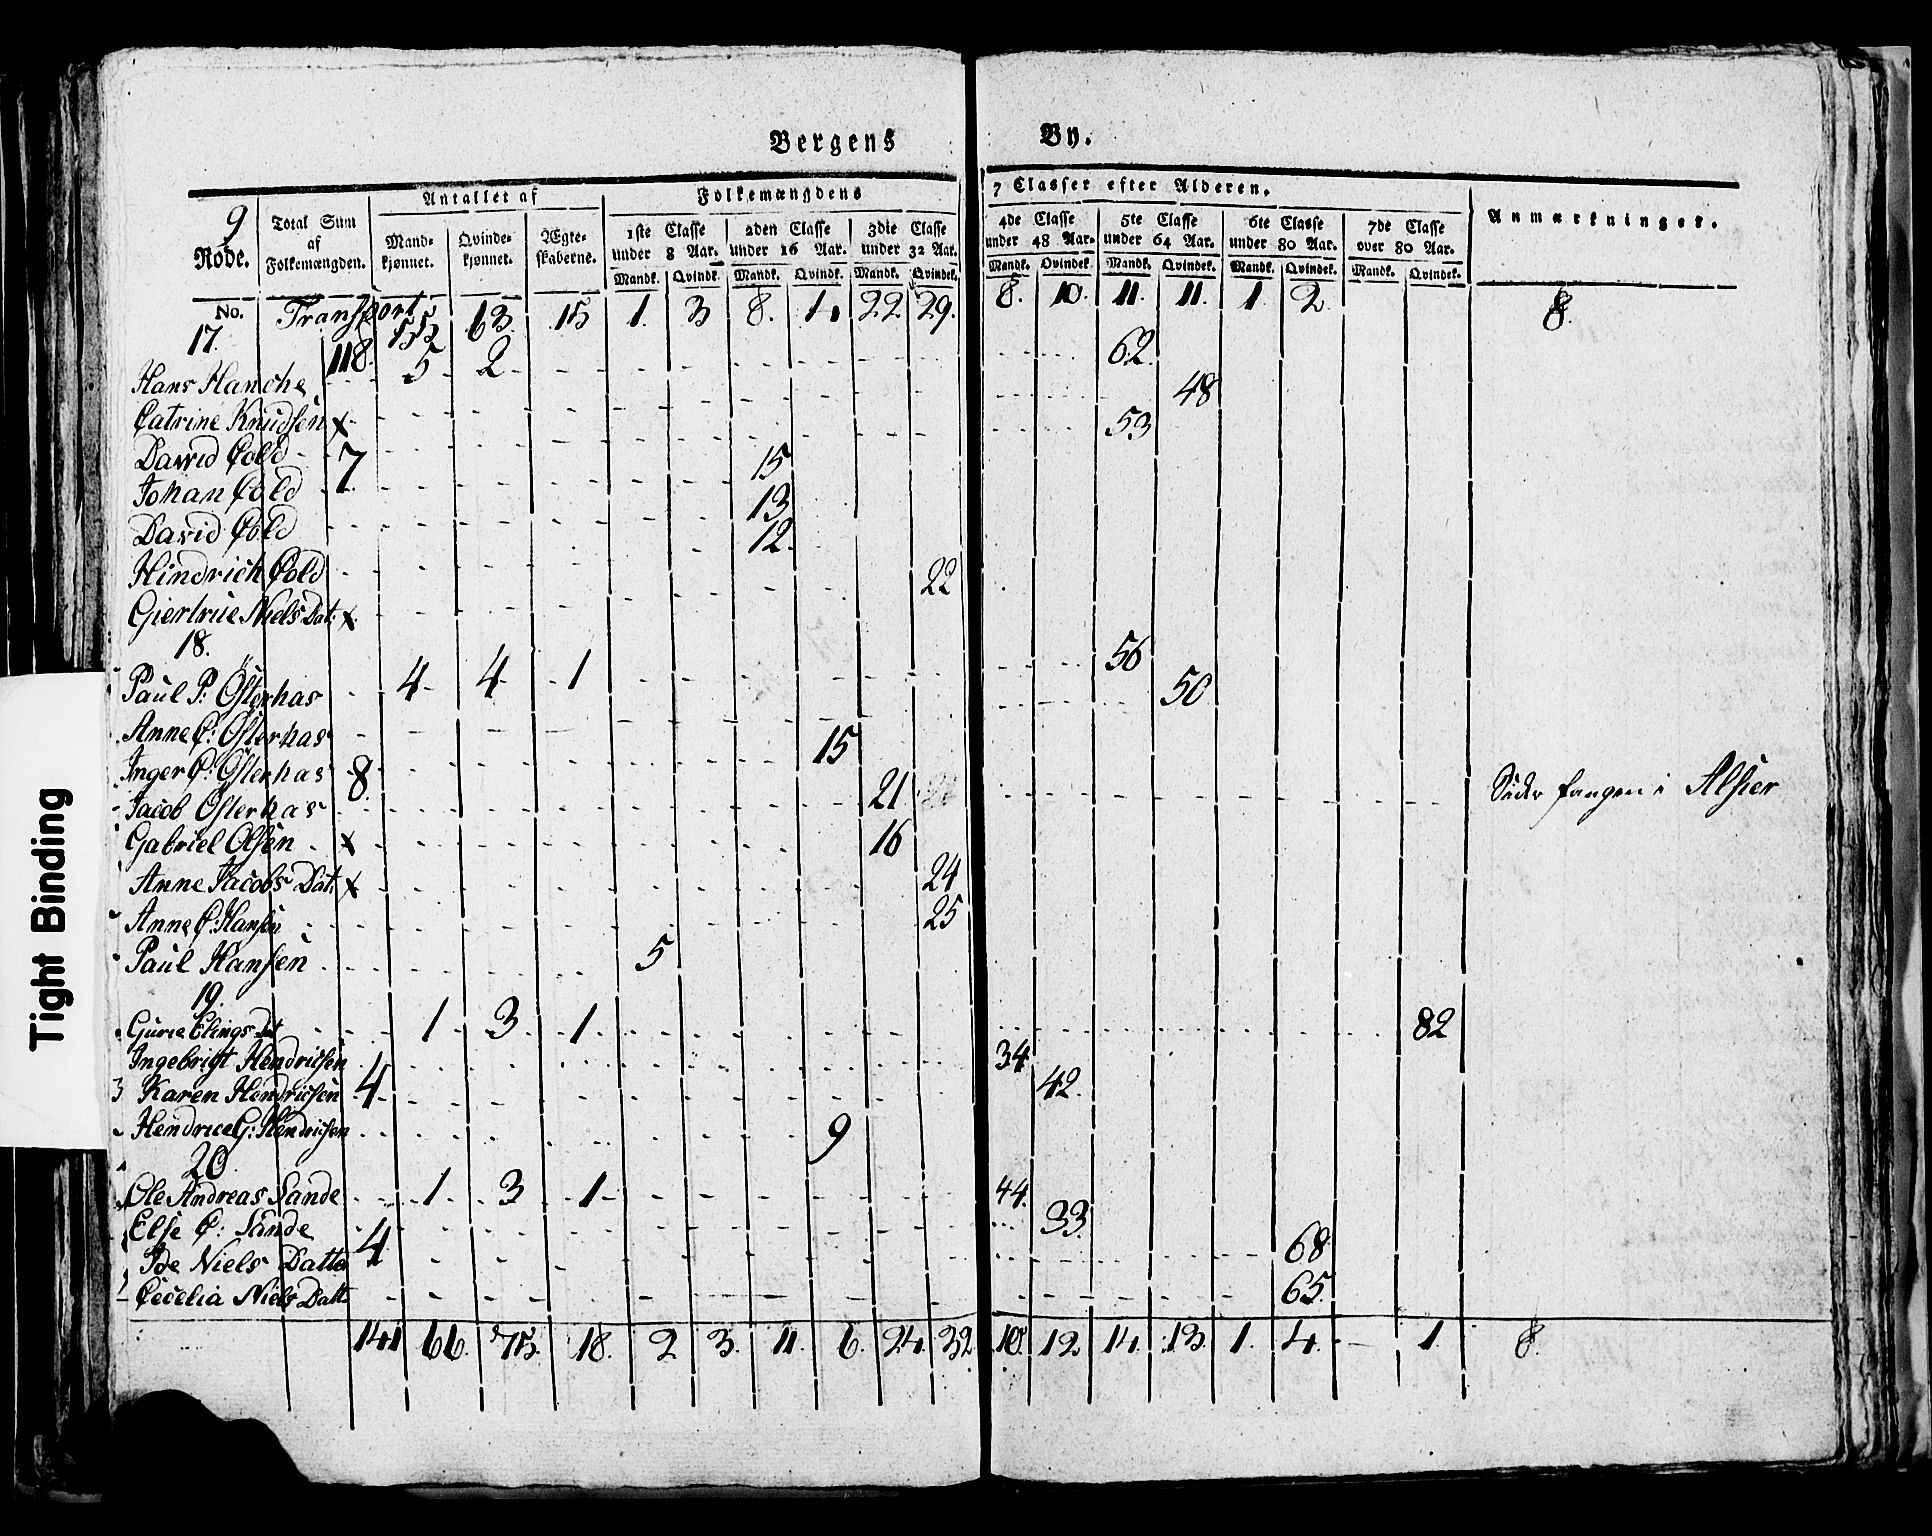 Bergens By.
9 Rode.
Total Sum af Folkemængden.
Antallet af
Mand-kjønnet. Qvinde-kjønnet. Ægte-skaberne.
Folkemængdens 7 Classer efter Alderen.
1ste Classe under 8 Aar. 2den Classe under 16 Aar. 3die Classe under 32 Aar. 4de Classe under 48 Aar. 5te Classe under 64 Aar. 6te Classe under 80 Aar. 7de Classe over 80 Aar.
Mandk. Qvindk. Mandk. Qvindk. Mandk. Qvindek. Mandk. Qvindek. Mandk. Qvindek. Mandk. Qvindek. Mandk. Qvindek.
Anmærkninger.
No. Transport 118. 55 63. 15 1. 3 8. 4 22 29. 8. 10. 11. 11. 1. 2 8.
17.
Hans Hanche 5 2 62.
Catrine Knudsen x 48
David Cold 7 53
Johan Cold 15
David Cold 13
Hindrich Cold 12.
Giertrue Niels Dat: x 22
18.
Paul P: Østerhas 4 4 1 56
Anne C: Østerhas 50
Inger C: Østerhas 8 15
Jacob Østerhas 21 fangen i
Gabriel Olsen x 16
Anne Jacobs Dat: x 24
Anne C: Hansen 25
Paul Hansen 5
19.
Gurie Elings Dat 1 3 1 82
Ingebrigt Hendricsen 34
Karen Hendricsen 4 42.
Hendrice G: Hendricsen 9
20
Ole Andreas Sande 1 3 1 44.
Else C: Sande 33.
Ide Niels Datter 4 68
Cecelia Niels Datt 65.
141 66. 75. 18. 2 3. 11. 6. 24. 32 10. 12 14. 13. 1. 4. 1. 8.
Tight Binding